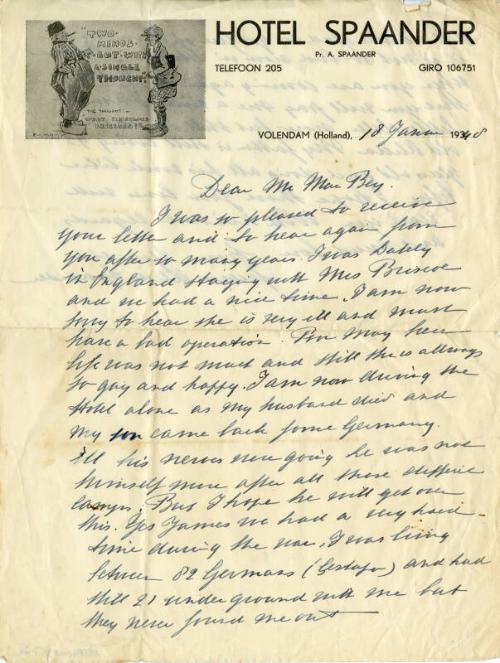 "TWO
MINDS
BUT WITH
A SINGLE
THOUGHT"
THE THOUGHT:—
HOTEL SPAANDER
Pr. A. SPAANDER
TELEFOON 205
GIRO 106751
VOLENDAM (Holland), 18 Januari 1948
Dear Mr Mac Bey.
I was so pleased to receive
your letter and to hear again from
you after so many years I was Lately
in England staying with Mrs Briscoe
and we had a nice time. I am now
sorry to hear she is very ill and must
have a bad operation. Poor May here
life was not much and still she is allways
so gay and happy. I am now driving the
Hotel alone as my husband died and
my son came back from Germany.
All his nerves were going he was not
himself more after all those
camps; But I hope he will get over
this. Yes James we had a very hard
time during the war, I was living
between 82 Germans (Gestapo) and had
still 21 underground with me but
they never found me out